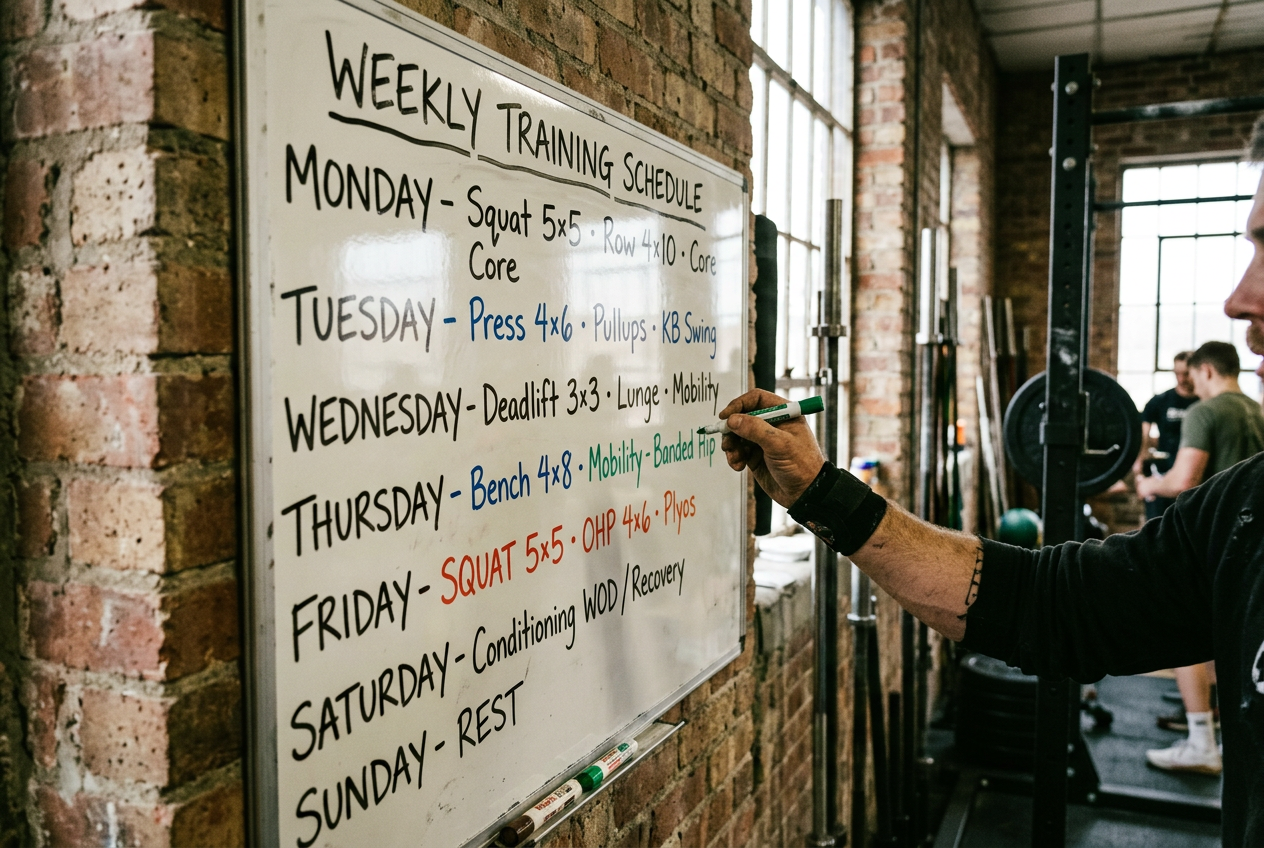 WEEKLY TRAINING SCHEDULE
MONDAY - Squat 5x5 · Row 4x10 · Core
Core
TUESDAY - Press 4x6 · Pullups · KB Swing
WEDNESDAY - Deadlift 3x3 · Lunge · Mobility
THURSDAY - Bench 4x8 · Mobility - Banded Hip
FRIDAY - SQUAT 5x5 · OHP 4x6 · Plyos
SATURDAY - Conditioning WOD / Recovery
SUNDAY - REST